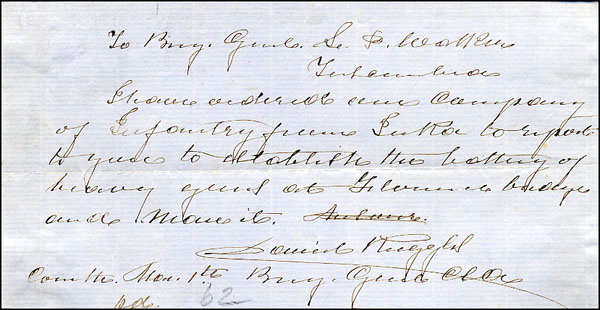 To Brig. Genl. L. P. Walker
Tuscumbia
I have ordered one Company
of Infantry from Iuka to report
to you to establish the battery of
heavy guns at Florence bridge
and Man it. Answer.
Daniel Ruggles
Corinth. Mar. 1th Brig. Genl C.S.A.
pd. 62